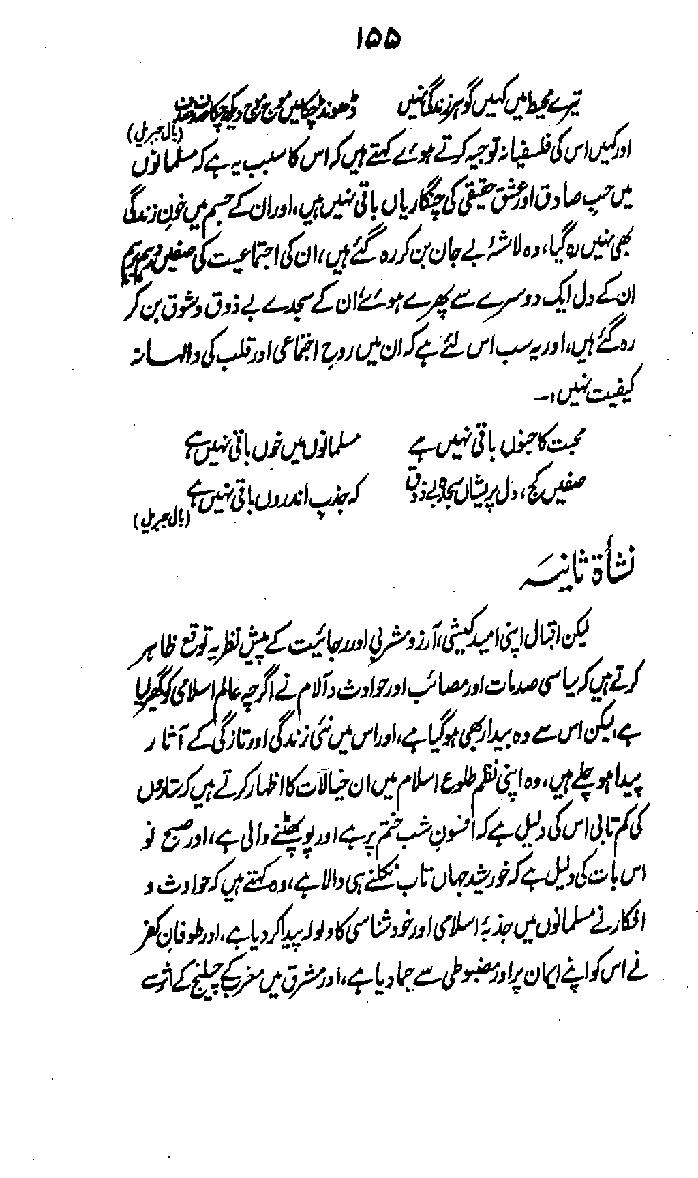 ۱۵۵
تیرے محیط میں کہیں گوہر زندگی نہیں ڈھونڈ چکا میں موج موج دیکھ چکا صدف صدف
(بال جبریل)
اور کہیں اس کی فلسفیانہ توجیہ کرتے ہوئے کہتے ہیں کہ اس کا سبب یہ ہے کہ مسلمانوں
میں حب صادق اور عشق حقیقی کی چنگاریاں باقی نہیں ہیں، اور ان کے جسم میں خون زندگی
بھی نہیں رہ گیا، وہ لاشۂ بے جان بن کر رہ گئے ہیں، ان کی اجتماعیت کی صفیں درہم برہم
ان کے دل ایک دوسرے سے پھرے ہوئے ان کے سجدے بے ذوق و شوق بن کر
رہ گئے ہیں، اور یہ سب اس لئے ہے کہ ان میں روح اجتماعی اور قلب کی والہانہ
کیفیت نہیں :۔
محبت کا جنوں باقی نہیں ہے مسلمانوں میں خوں باقی نہیں ہے
صفیں کج، دل پریشاں، سجدہ بے ذوق کہ جذب اندروں باقی نہیں ہے
(بال جبریل)
نشأۃ ثانیہ
لیکن اقبال اپنی امید کیشی، آرزو مشربی اور رجائیت کے پیش نظر یہ توقع ظاہر
کرتے ہیں کہ سیاسی صدمات اور مصائب اور حوادث و آلام نے اگرچہ عالم اسلامی کو گھیر لیا
ہے، لیکن اس سے وہ بیدار بھی ہو گیا ہے، اور اس میں نئی زندگی اور تازگی کے آثار
پیدا ہو چلے ہیں، وہ اپنی نظم طلوع اسلام میں ان خیالات کا اظہار کرتے ہیں کہ ستاروں
کی کم تابی اس کی دلیل ہے کہ افسون شب ختم پر ہے اور پو پھٹنے والی ہے، اور صبح نو
اس بات کی دلیل ہے کہ خورشید جہاں تاب نکلنے ہی والا ہے، وہ کہتے ہیں کہ حوادث و
افکار نے مسلمانوں میں جذبۂ اسلامی اور خود شناسی کا ولولہ پیدا کر دیا ہے، اور طوفان کفر
نے اس کو اپنے ایمان پر اور مضبوطی سے جما دیا ہے، اور مشرق میں مغرب کے چیلنج کے اثر سے